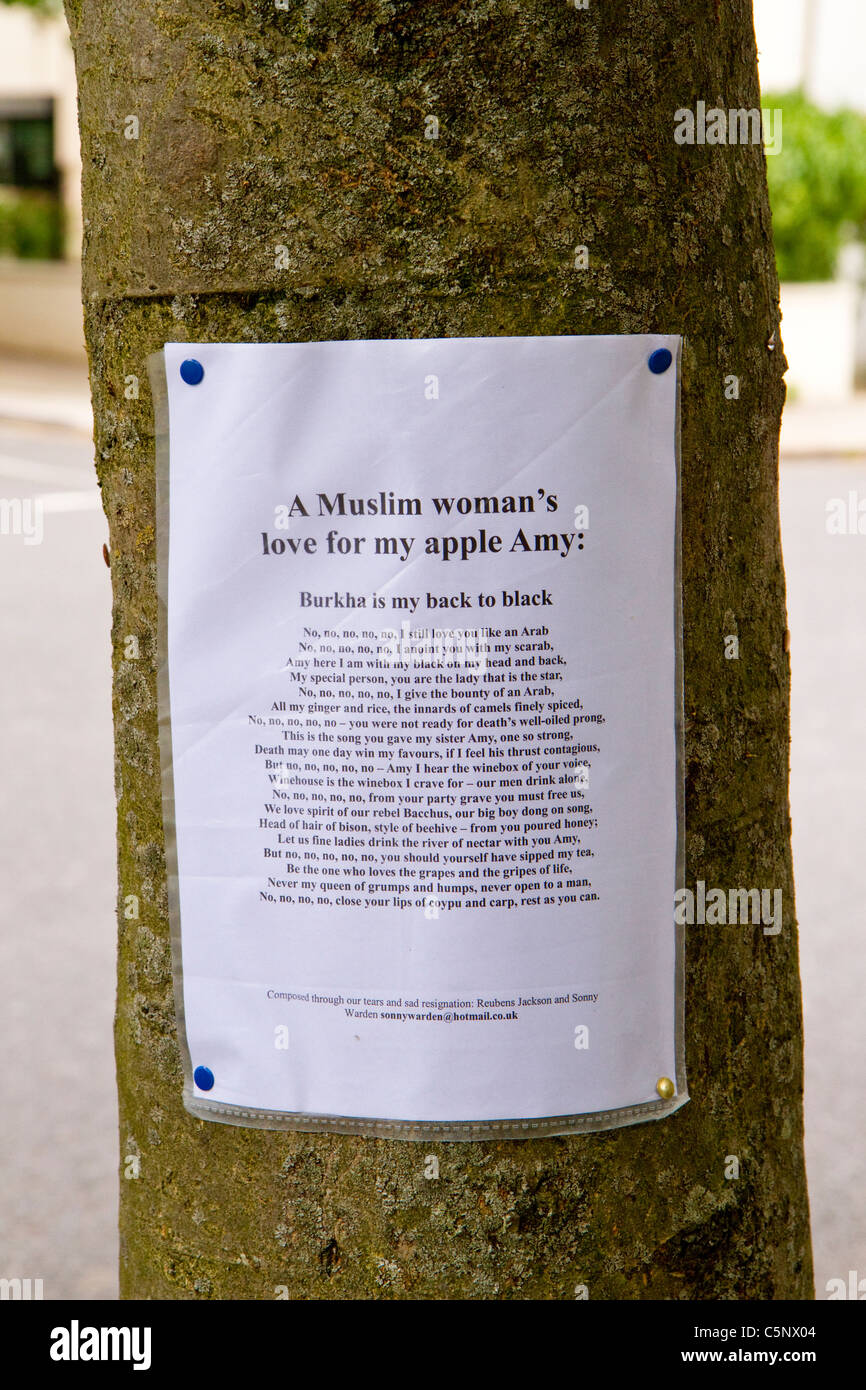 A Muslim woman's
love for my apple Amy:
Burkha is my back to black
No, no, no, no, no, I still love you like an Arab
No, no, no, no, no, I anoint you with my scarab,
Amy here I am with my black on my head and back,
My special person, you are the lady that is the star,
No, no, no, no, no, I give the bounty of an Arab,
All my ginger and rice, the innards of camels finely spiced,
No, no, no, no, no – you were not ready for death's well-oiled prong,
This is the song you gave my sister Amy, one so strong,
Death may one day win my favours, if I feel his thrust contagious,
But no, no, no, no, no – Amy I hear the winebox of your voice,
Winehouse is the winebox I crave for – our men drink along,
No, no, no, no, no, from your party grave you must free us,
We love spirit of our rebel Bacchus, our big boy dong on song,
Head of hair of bison, style of beehive – from you poured honey;
Let us fine ladies drink the river of nectar with you Amy,
But no, no, no, no, no, you should yourself have sipped my tea,
Be the one who loves the grapes and the gripes of life,
Never my queen of grumps and humps, never open to a man,
No, no, no, no, close your lips of coypu and carp, rest as you can.
Composed through our tears and sad resignation: Reubens Jackson and Sonny
Warden sonnywarden@hotmail.co.uk
alamy
Image ID: C5NX04
www.alamy.com